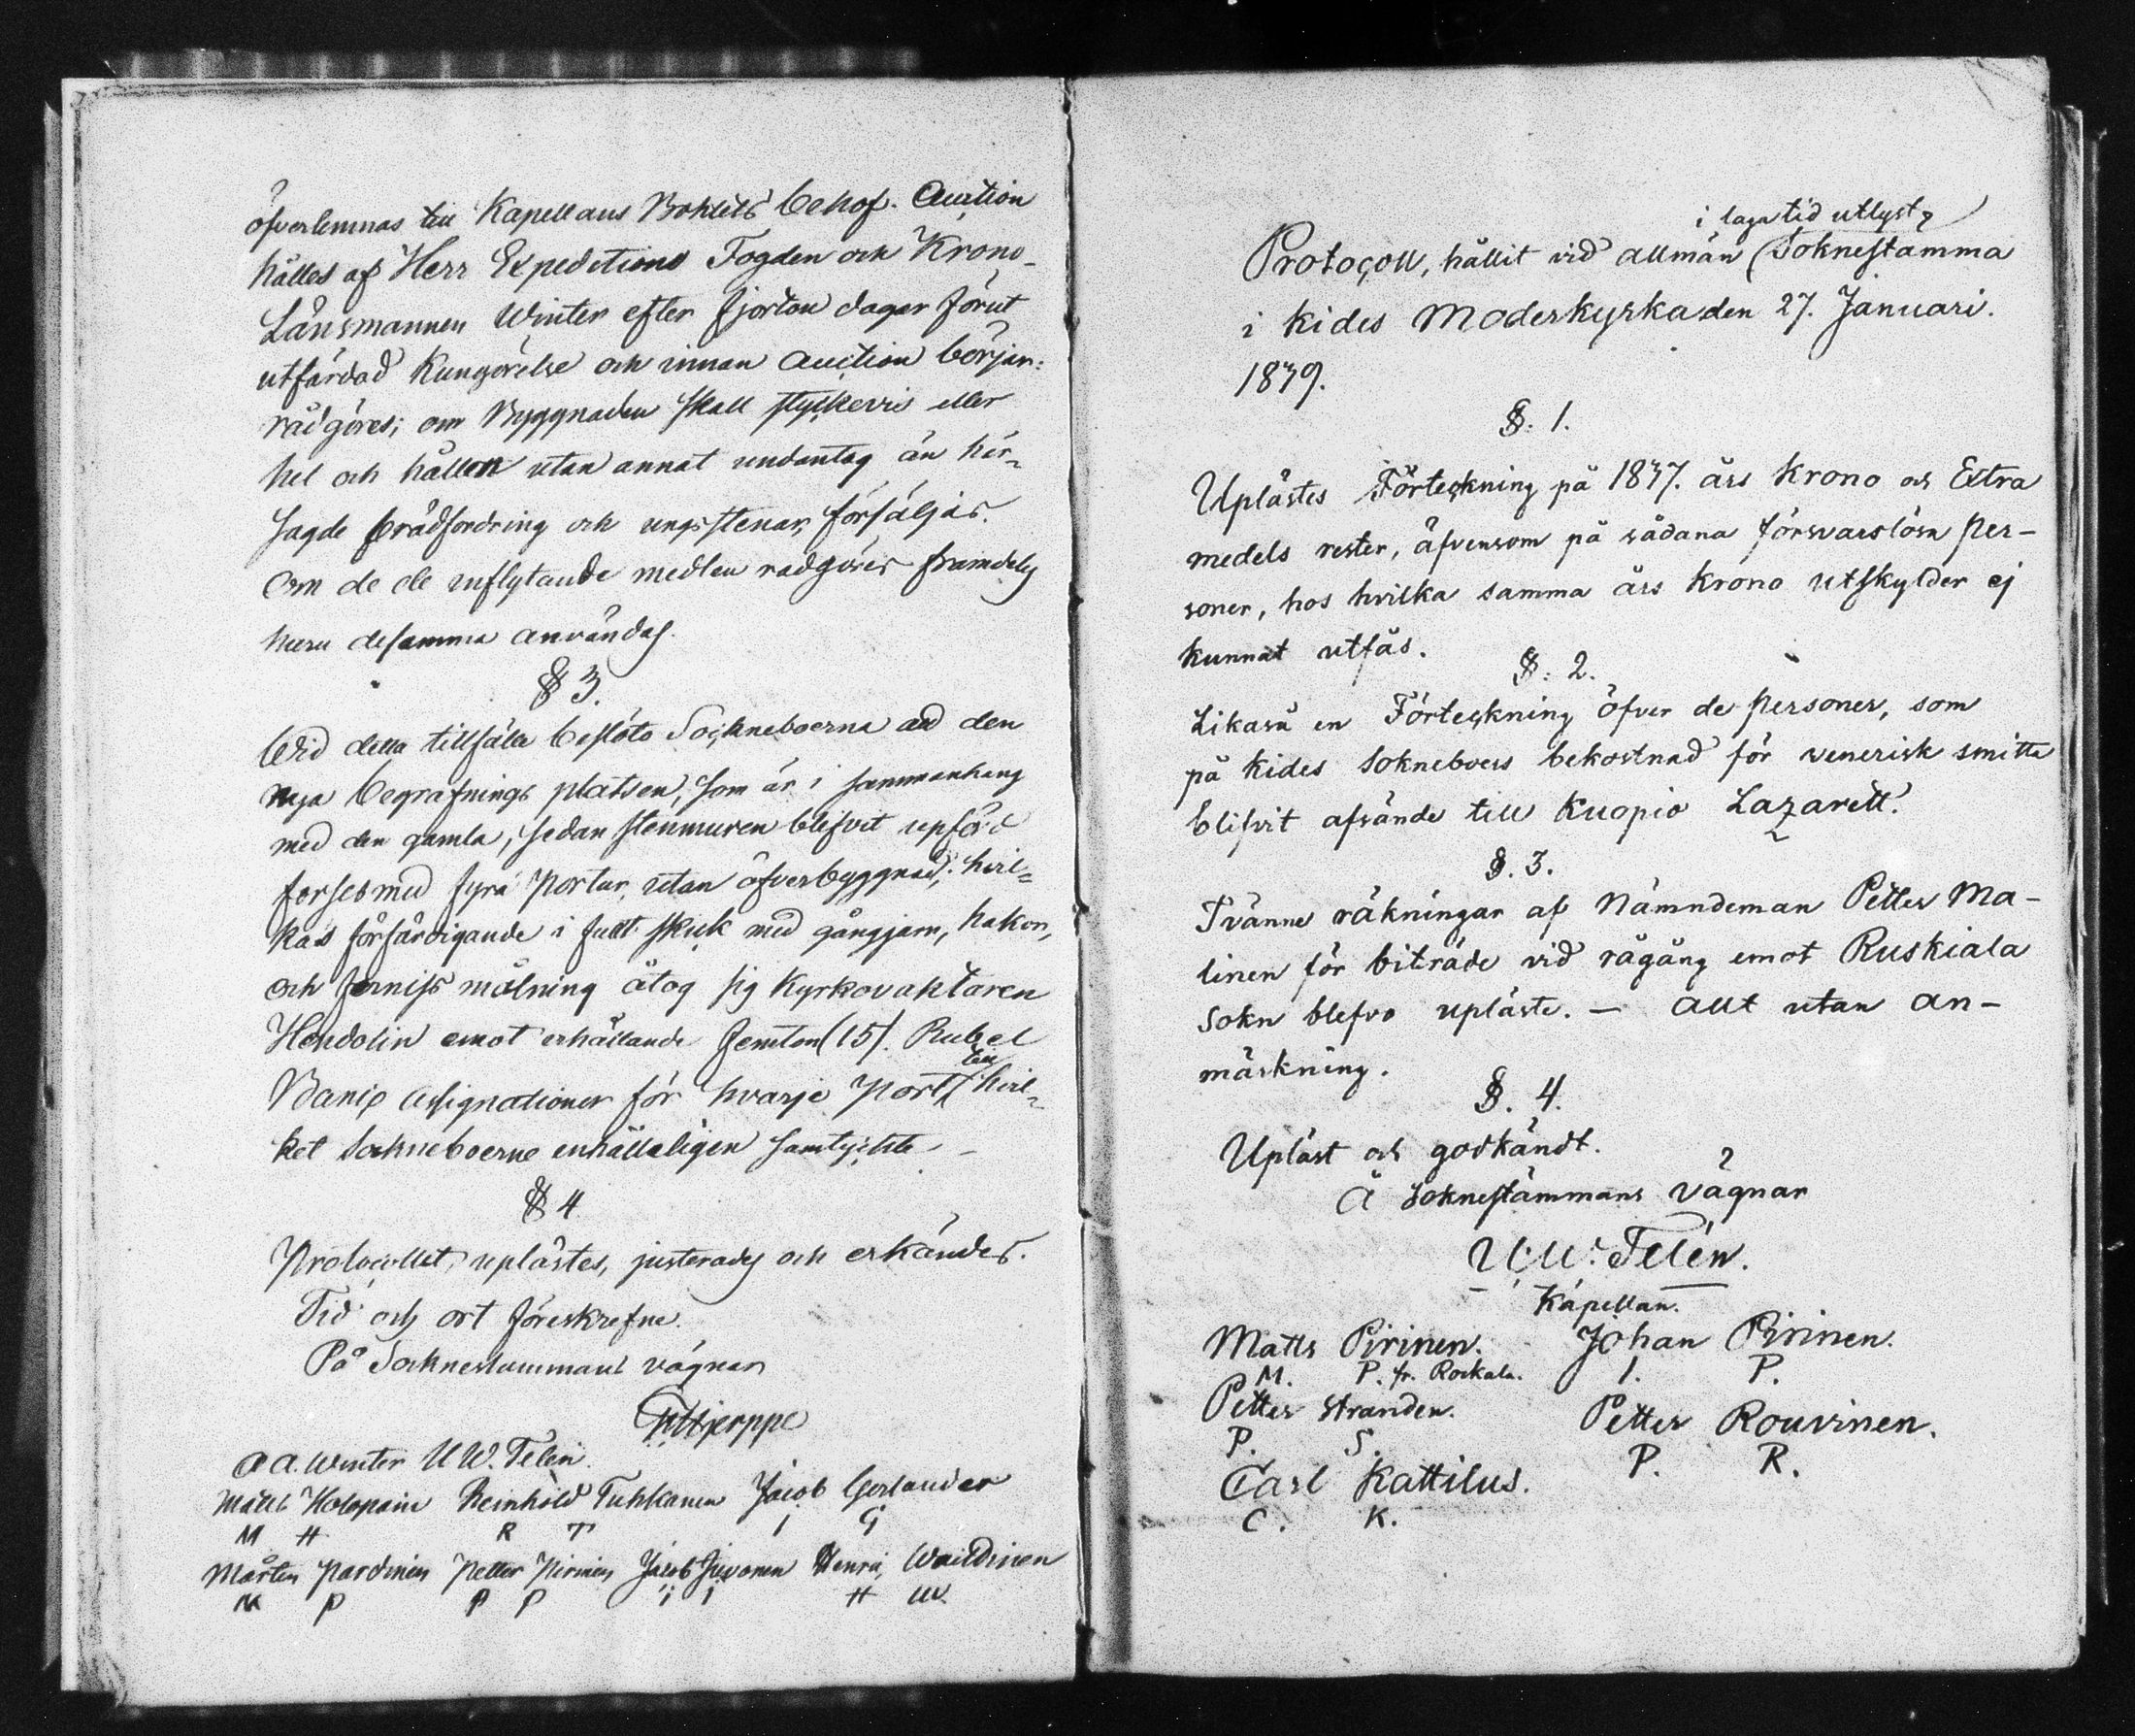 öfverlemnas till Kapellans Bohlets behof. Auction
hålles af Herr Expeditions Fogden och Krono-
Länsmannen Winter efter fjorton dagar förut
utfärdad Kungörelse och innan Auction börjar:
rådgöres; om Byggnaden skall styckevis eller
hel och hållen utan annat undantag än här-
sagde brädfordring och ungsstenar, försäljas.
Om de de inflytande medlen rådgöres framdeles
huru desamma användas.
§ 3.
Wid detta tillfälle beslöto Sockneboerna att den
nya begrafnings platsen, som är i sammanhang
med den gamla, sedan stenmuren blifvit upförd
förses med fyra portar, utan öfverbyggnad; hvil-
kas förfärdigande i fullt skick med gångjern, hakor,
och ferniss målning åtog sig Kyrkovaktaren
Hendolin emot erhållande femton (15). Rubel
Banco Assignationer för hvarje port, till hvil-
ket Sockneboerne enhälleligen samtyckte. –
§ 4
Protocollet, uplästes, justerades och erkändes.
Tid och ort föreskrefne.
På Socknestämmans vägnar
A A. Winter U W. Telén.
Matts Holopain Reinhold Tuhkanen Jacob Gerlander
M H R T I G
Mårten Pardinen Petter Pirinen Jacob Juvonen Henric Waittinen
M P P P I I H W.
i laga tid utlyst
Protocoll, hållit vid allmän Soknestämma
i Kides Moderkyrka den 27. Januari.
1839.
§. 1.
Uplästes Förteckning på 1837. års Krono och Extra
medels rester, äfvensom på sådana försvarslösa per-
soner, hos hvilka samma års Krono utskylder ej
kunnat utfås.
§. 2.
Likaså en Förteckning öfver de personer, som
på Kides Sokneboers bekostnad för venerisk smitta
blifvit afsände till Kuopio Lazarett.
§. 3.
Tvänne räkningar af Nämndeman Petter Ma-
linen för biträde vid rågång emot Ruskiala
Sokn blefvo upläste. – Allt utan an-
märkning.
§. 4.
Upläst och godkändt.
Å Soknestämmans vägnar
U. W. Telén.
Kapellan.
Matts Pirinen. Johan Pirinen.
M. P. fr. Rockala. I. P.
Petter Stranden. Petter Rouvinen.
P. S. P. R.
Carl Kattilus.
C. K.